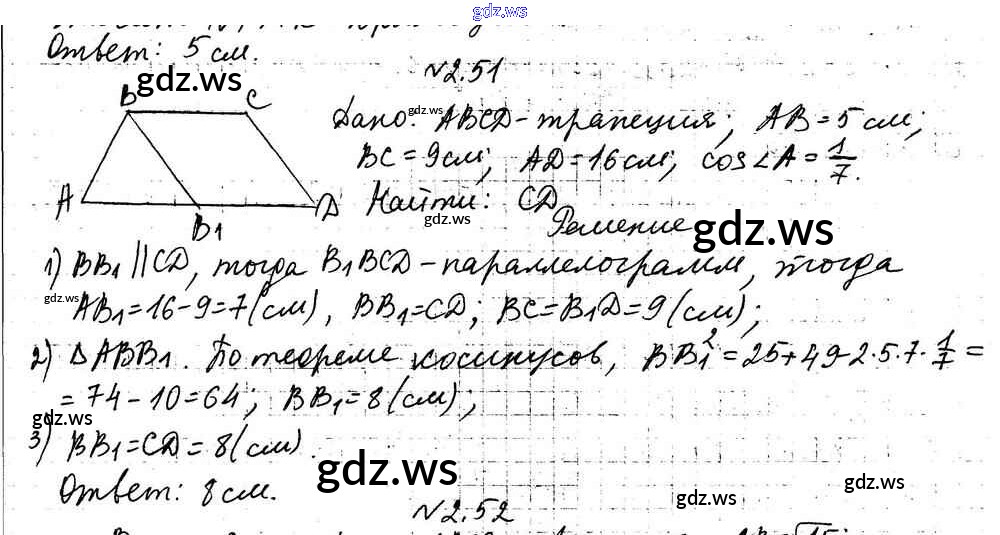 gdz.ws
Ответ: 5 см.
gdz.ws
№2.51
B C
A B1 D
gdz.ws
Дано: ABCD-трапеция; AB=5 см;
BC=9см; AD=16см; cos∠A=1/7.
Найти: CD
gdz.ws
Решение
gdz.ws
1) BB1 || CD, тогда B1BCD-параллелограмм, тогда
gdz.ws
AB1=16-9=7(см), BB1=CD; BC=B1D=9(см);
2) △ABB1. По теореме косинусов, BB1²=25+49-2·5·7·1/7=
=74-10=64; BB1=8(см);
gdz.ws
3) BB1=CD=8(см).
gdz.ws
Ответ: 8см.
gdz.ws
gdz.ws
№2.52